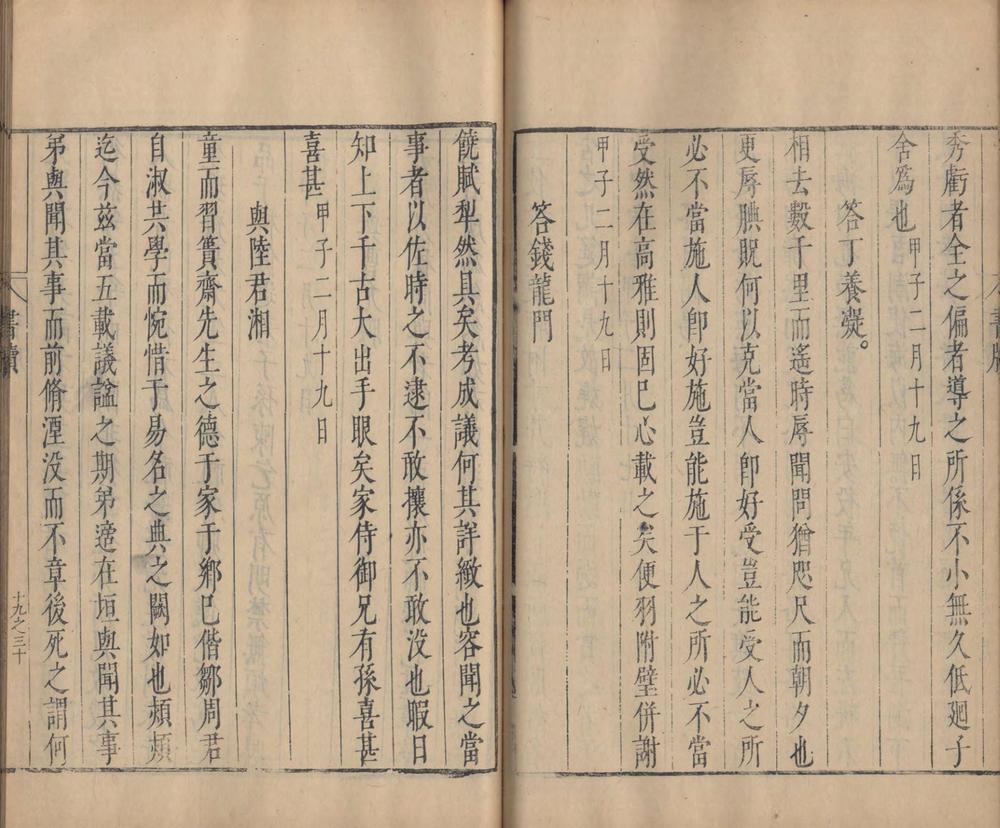 秀虧者全之偏者導之所係不小無久低廻子
舍爲也甲子二月十九日
答丁養凝。
相去數千里而遙時辱聞問猶咫尺而朝夕也
更辱腆貺何以克當人卽好受豈能受人之所
必不當施人卽好施豈能施于人之所必不當
受然在高雅則固已心載之矣便羽附璧併謝
甲子二月十九日
答錢龍門
饒賦犁然具矣考成議何其詳緻也容聞之當
事者以佐時之不逮不敢攘亦不敢没也暇日
知上下千古大出手眼矣家侍御兄有孫喜甚
喜甚甲子二月十九日
與陸君湘
童而習篔齋先生之德于家于鄉已偕鄒周君
自淑其學而惋惜于易名之典之闕如也頻頻
迄今兹當五載議謚之期弟適在垣與聞其事
弟與聞其事而前脩湮没而不章後死之謂何
書牘
十九之三十